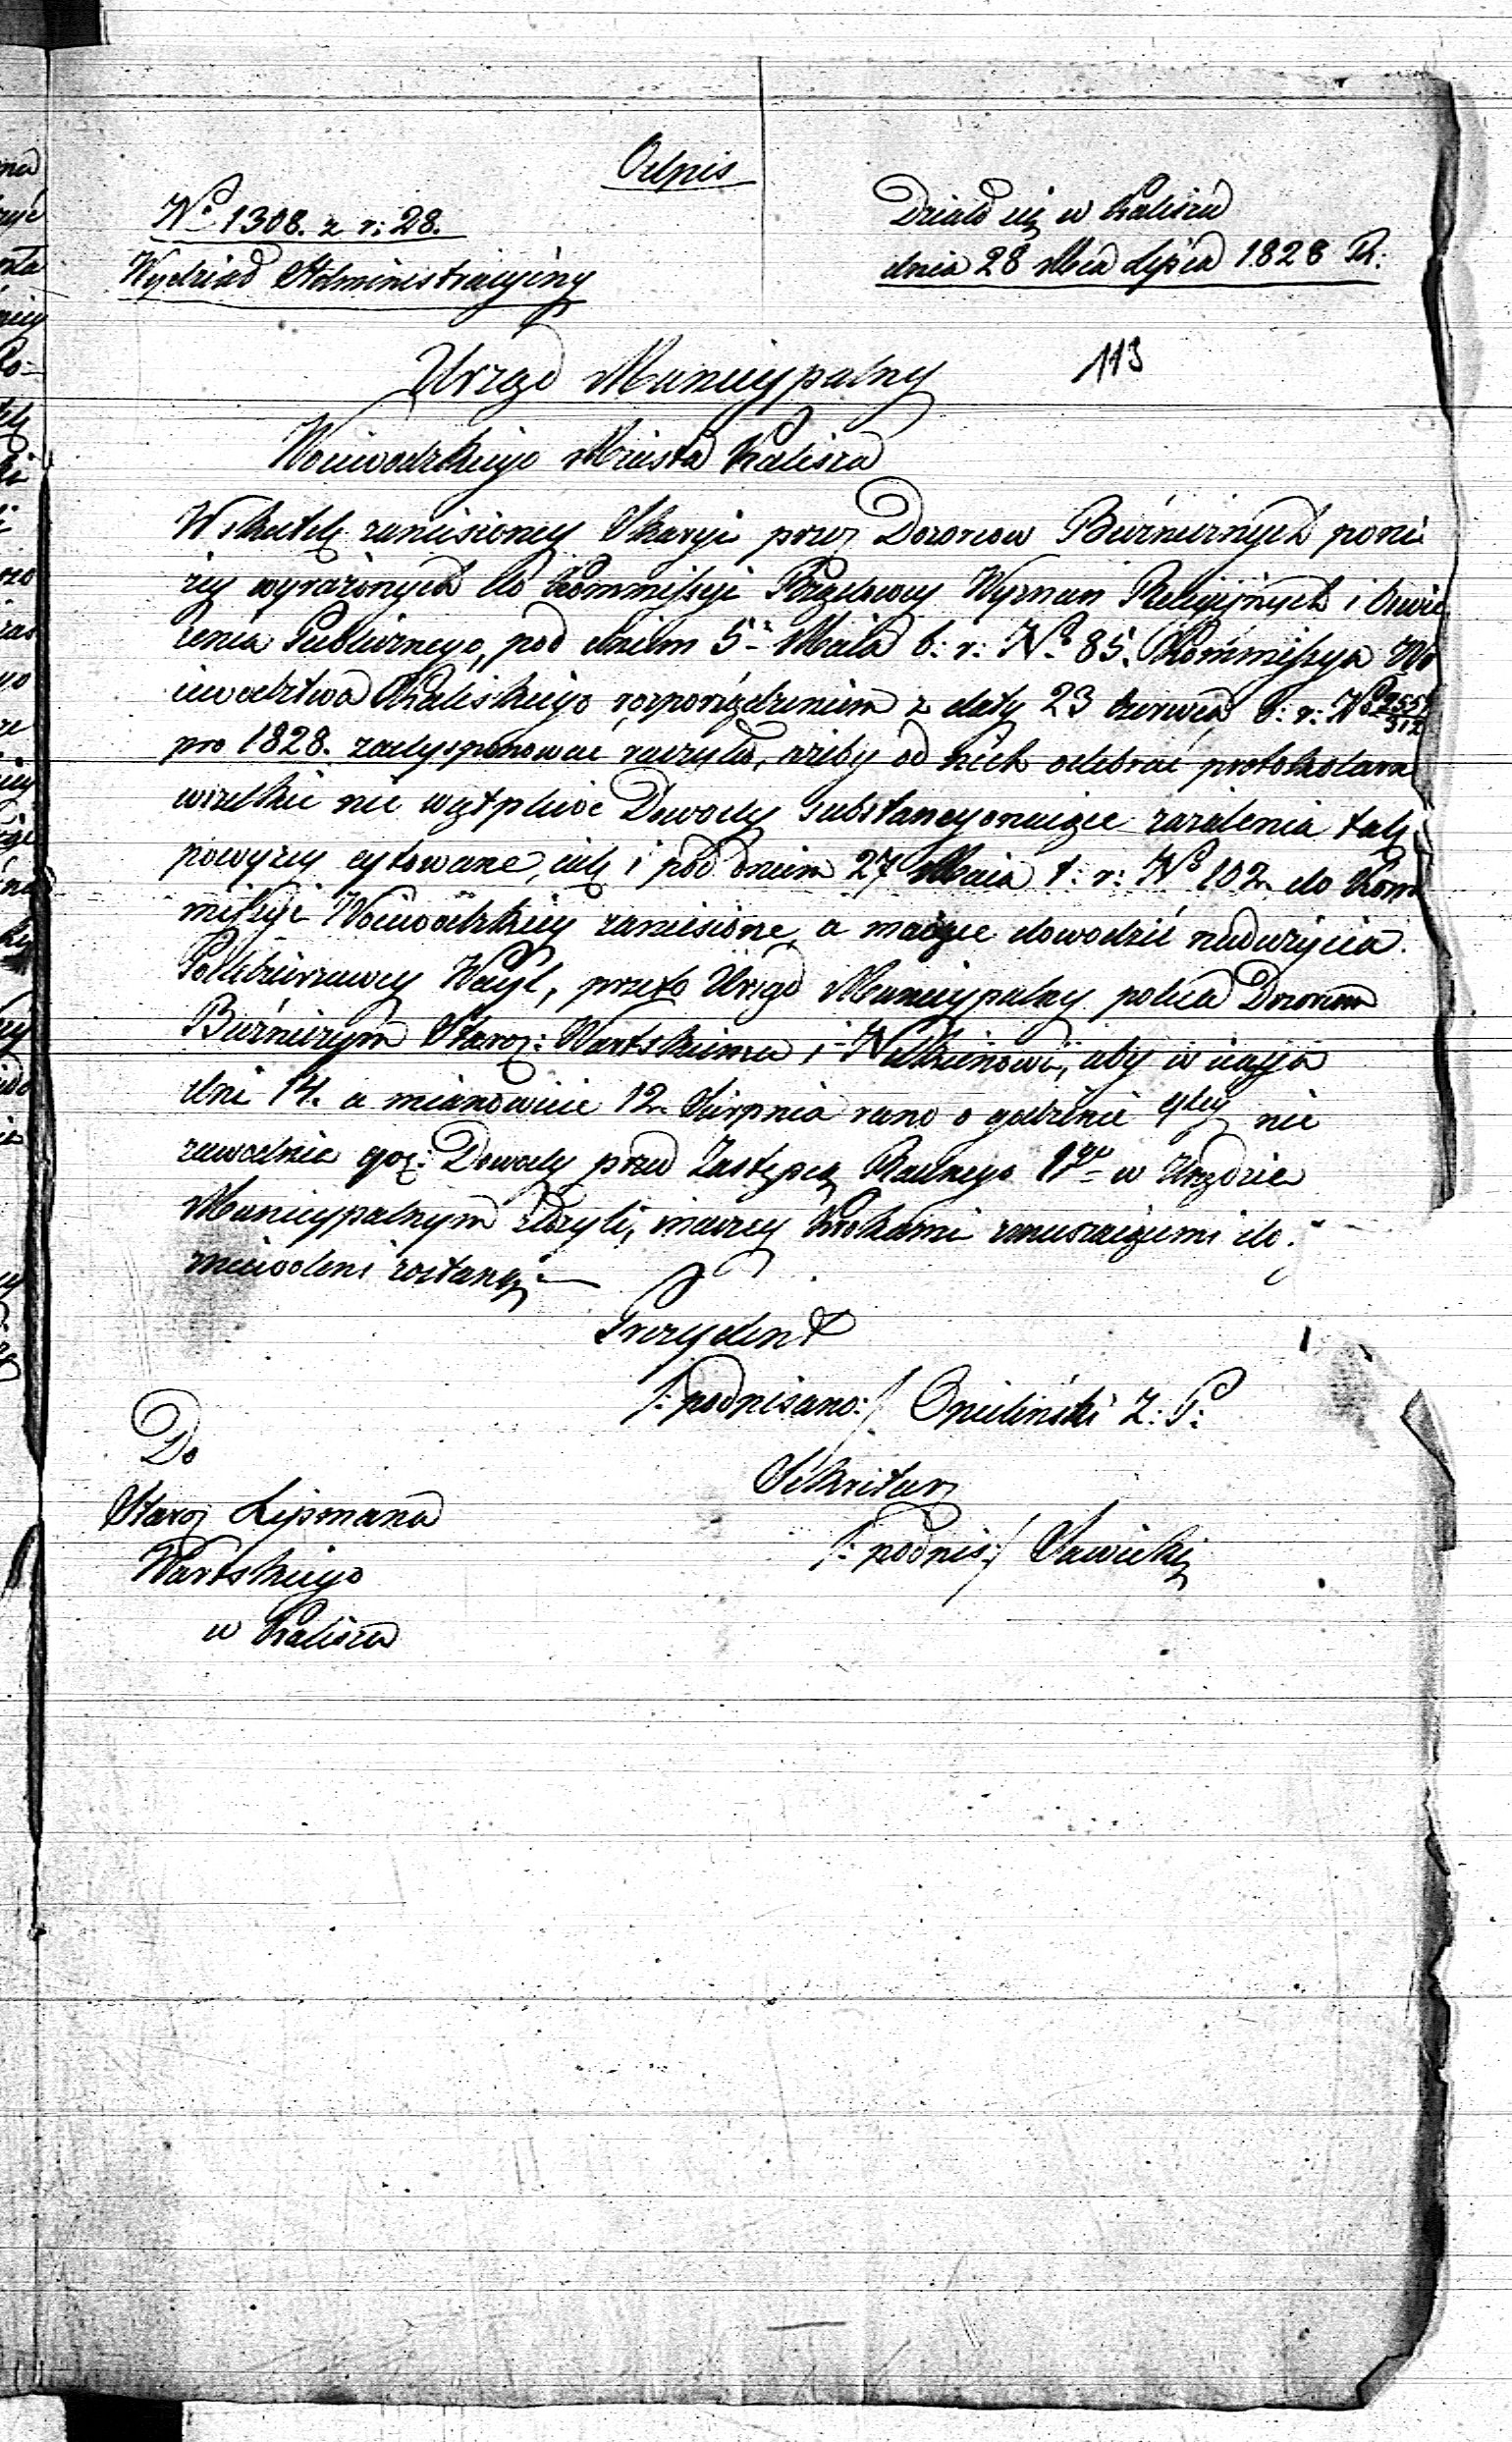 Odpis
No 1308. z r: 28.
Wydział Administracyiny
Działo się w Kaliszu
dnia 28 Mca Lipca 1828 R:
113
Urząd Municypalny
Woiewodzkiego Miasta Kalisza
Wskutek zaniesioney Skargi przez Dozorców Bużnicznych poni
zey wyrażonych do Kommissyi Rządowey Wyznań Religijnych i Oswie
cenia Publicznego, pod dniem 5 Maia b: r: No 85. Kommissya Wo
iewodztwa Kaliskiego rozporządzeniem z daty 23 Czerwca b: r: No
pro 1828. zadysponować raczyła, ażeby od nich odebrać protokolarn
wszelkie nie wątpliwe Dowody substancyonuiące zażalenia tak
powyzey cytowane, iak i pod dniem 27 Maia t: r: No 102 do Kom
missyi Woiewodzkiey zaniesione, a maiące dowodzić nadużycia
Poddzierzawcy Wayl, przeto Urząd Municypalny poleca Dozorcom
Bużniczym Staroz: Wartskiemu i aby w ciągu
dni 14. a mianowicie 12 Sierpnia rano o godzinie 9tey nie
zawodnie Dowody przed Zastępcą Radnego 1go w Urzędzie
Municypalnym złożyli, inaczey krokami zmuszaiącemi do
zniewoleni zostaną.
Prezydent
/: podpisano: / Opieliński Z: P:
Sekretarz
/: podpis: / Sawicki
Do
Staroz Lipmana
Wartskiego
w Kaliszu